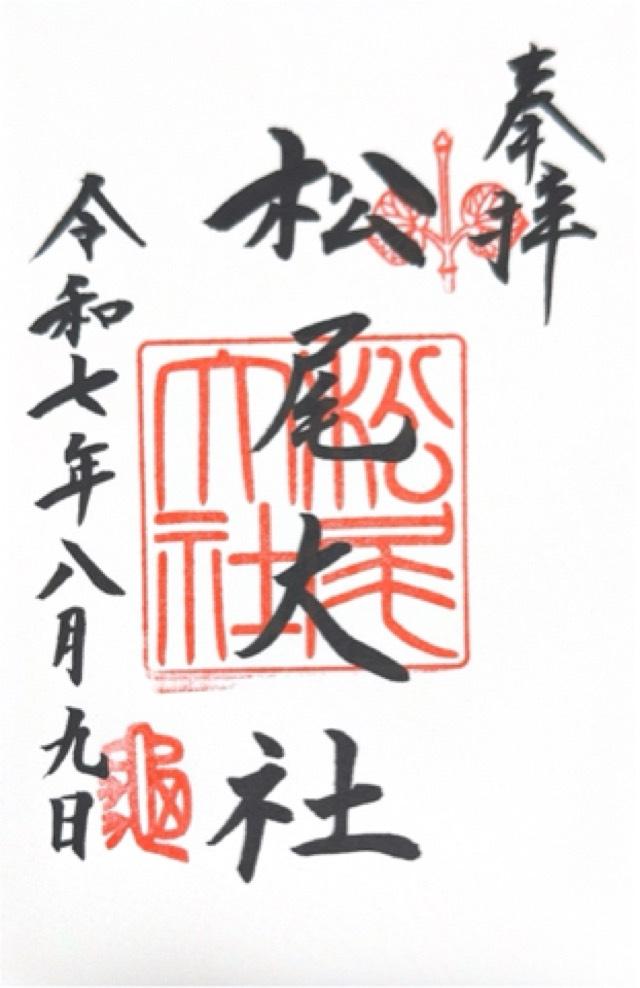 奉拝
松尾大社
松尾大社
令和七年八月九日
亀